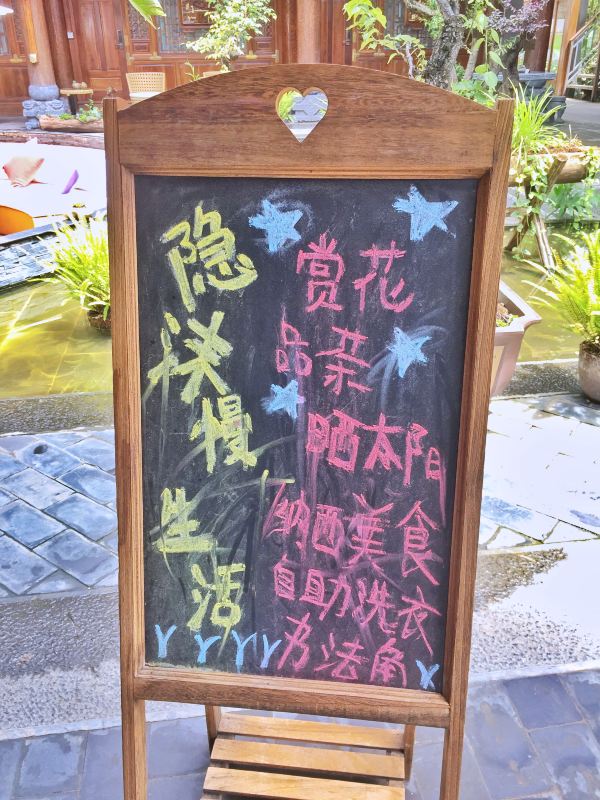 隐溪慢生活
赏花
品茶
晒太阳
纳西美食
自助洗衣
书法角